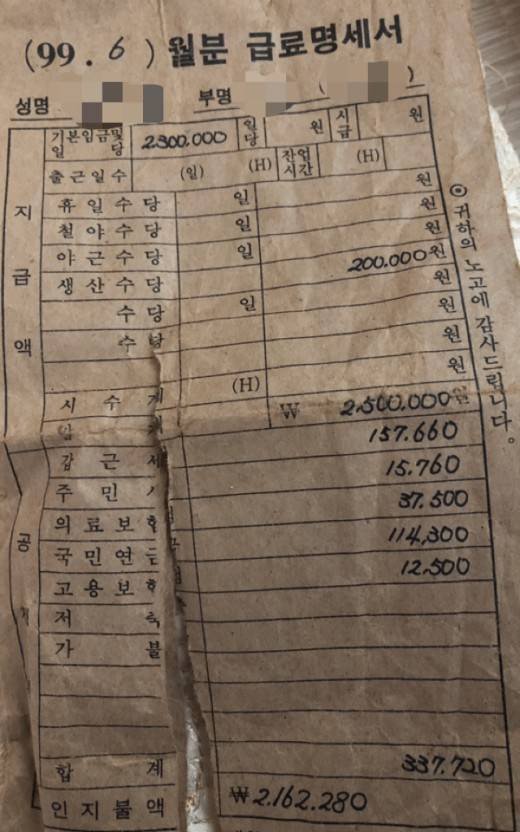 (99. 6) 월분 급료명세서
성명 부명 ( )
기본임금및 일당 2300.000 일당 원 시급 원
출근일수 (일) (H) 잔업시간 (H)
지급액
휴일수당 일 원
철야수당 일 원
야근수당 일 원
생산수당 200.000원
수당 일 원
수당 원
원
시수계 (H)
₩ 2.500.000원
갑근세 157.660
주민 15.760
의료보험 37.500
국민연금 114,300
고용보험 12.500
저축
가불
합계 337.720
인지불액 ₩2.162.280
공
◎ 귀하의 노고에 감사드립니다.